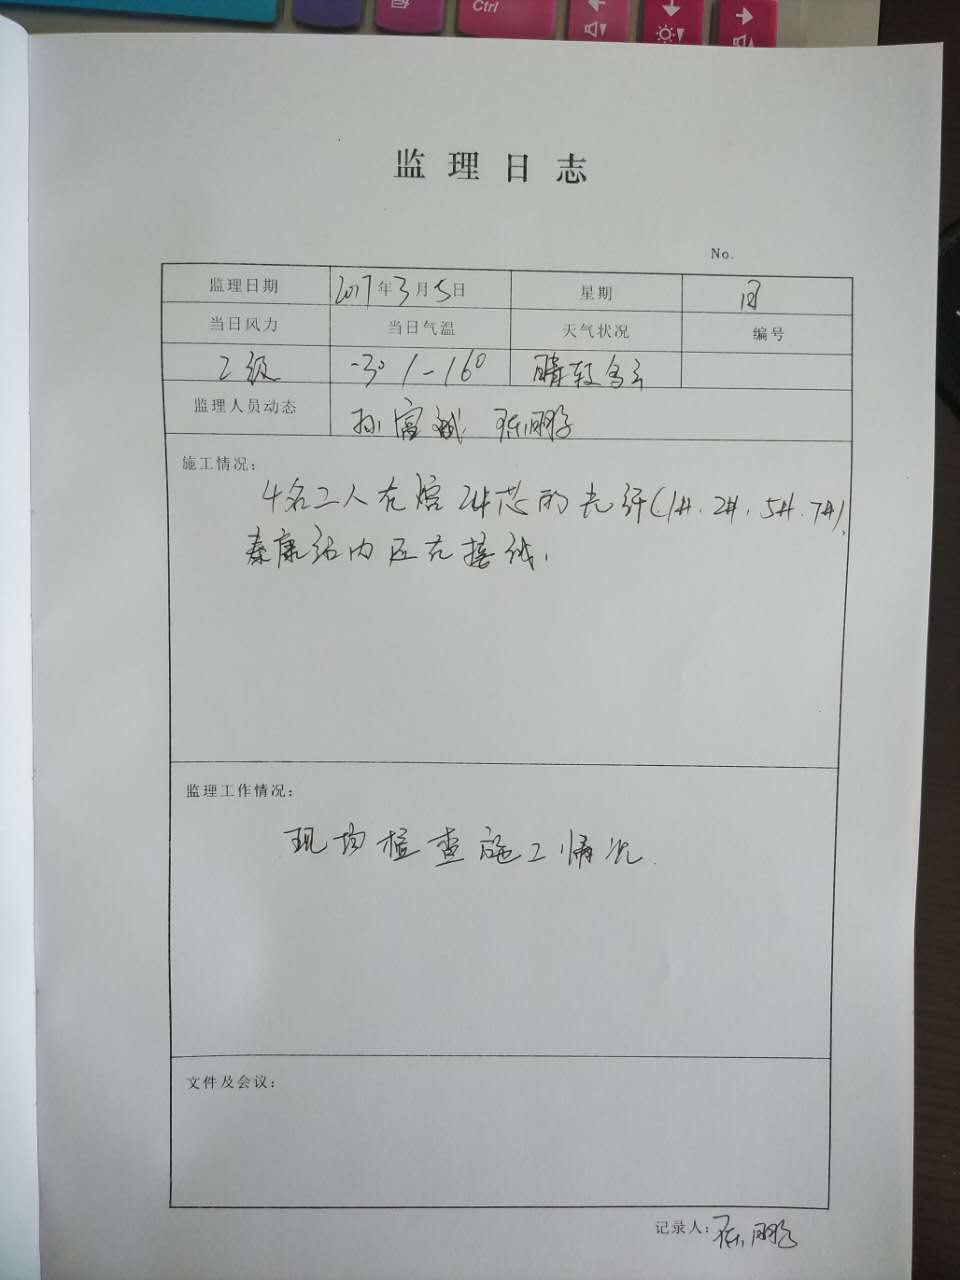 Ctrl
监理日志
No.
监理日期 2017年3月5日 星期 日
当日风力 当日气温 天气状况 编号
2级 -3° / -16° 晴转多云
监理人员动态 孙富斌 陈鹏
施工情况：
4名工人在熔24芯的光纤(1#、2#、5#、7#)、
泰康站内还在接线.
监理工作情况：
现场检查施工情况.
文件及会议：
记录人：陈鹏